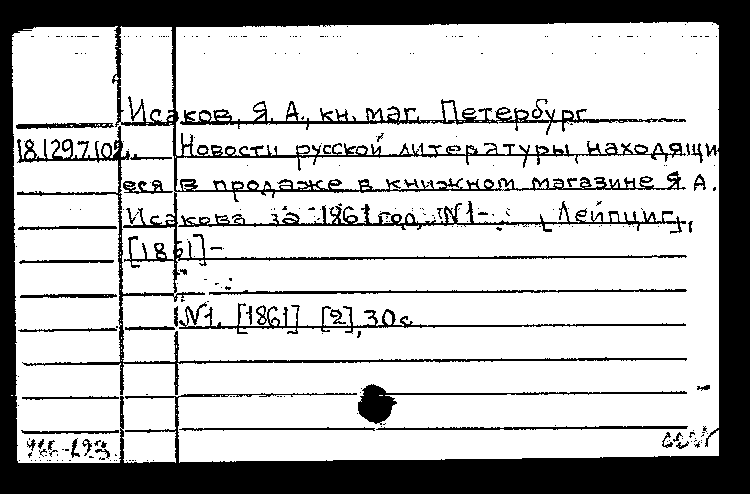 Исаков, Я. А., кн. маг. Петербург
18.129.7.102. Новости русской литературы, находящи-
еся в продаже в книжном магазине Я. А.
Исакова за 1861 год, N1- [Лейпциг],
[1861]-
N1. [1861] [2], 30 с.